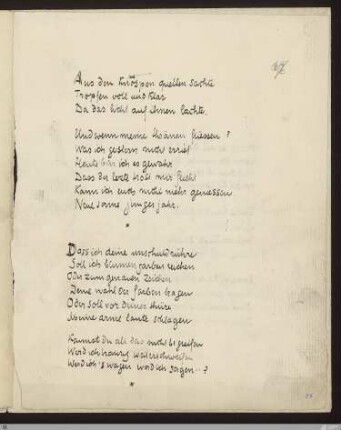 Aus den knospen quellen sachte
Tropfen voll und klar
Da das licht auf ihnen lachte.
Und wenn meine thränen fliessen?
Was ich gestern noch
Heute bin ich es gewahr
Dass der letzte trost mir flieht
Kann ich euch nicht mehr geniessen
Neue sonne junges jahr.
*
Dass ich deine unschuld rühre
Soll ich blumen reichen
Oder zum genauen zeichen
Deine wahl der farben tragen
Oder soll vor deiner thüre
Meine arme laute schlagen
Kannst Du all das nicht begreifen
Werd ich traurig weiterschweifen
Werd ich's wagen werd ich sagen ..?
*